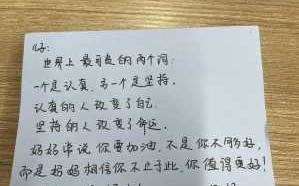 世界上最可贵的两个词:
一个是认真,另一个是坚持。
认真的人改变了自己
坚持的人改变了命运。
妈妈常说你要加油,不是你不够好,
而是妈妈相信你不止于此,你值得更好!